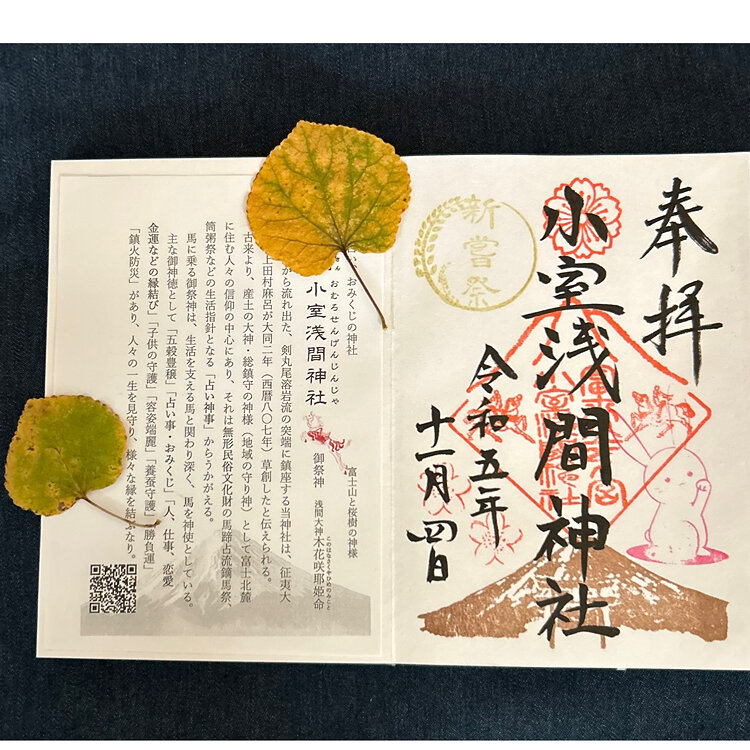 奉拝
小室浅間神社
令和五年
十一月四日
新嘗祭
い、おみくじの神社
富士山と桜樹の神様
おむろせんげんじんじゃ
小室浅間神社
御祭神 浅間大神 木花咲耶姫命
このはなさくやひめのみこと
から流れ出た、剣丸尾溶岩流の突端に鎮座する当神社は、征夷大
上田村麻呂が大同二年（西暦八〇七年）草創したと伝えられる。
古来より、産土の大神・総鎮守の神様（地域の守り神）として富士北麓
に住む人々の信仰の中心にあり、それは無形民俗文化財の馬蹄占流鏑馬祭、
筒粥祭などの生活指針となる「占い神事」からうかがえる。
馬に乗る御祭神は、生活を支える馬と関わり深く、馬を神使としている。
主な御神徳として「五穀豊穣」「占い事・おみくじ」「人、仕事、恋愛
金運などの縁結び」「子供の守護」「容姿端麗」「養蚕守護」「勝負運」
「鎮火防災」があり、人々の一生を見守り、様々な縁を結ぶなり。